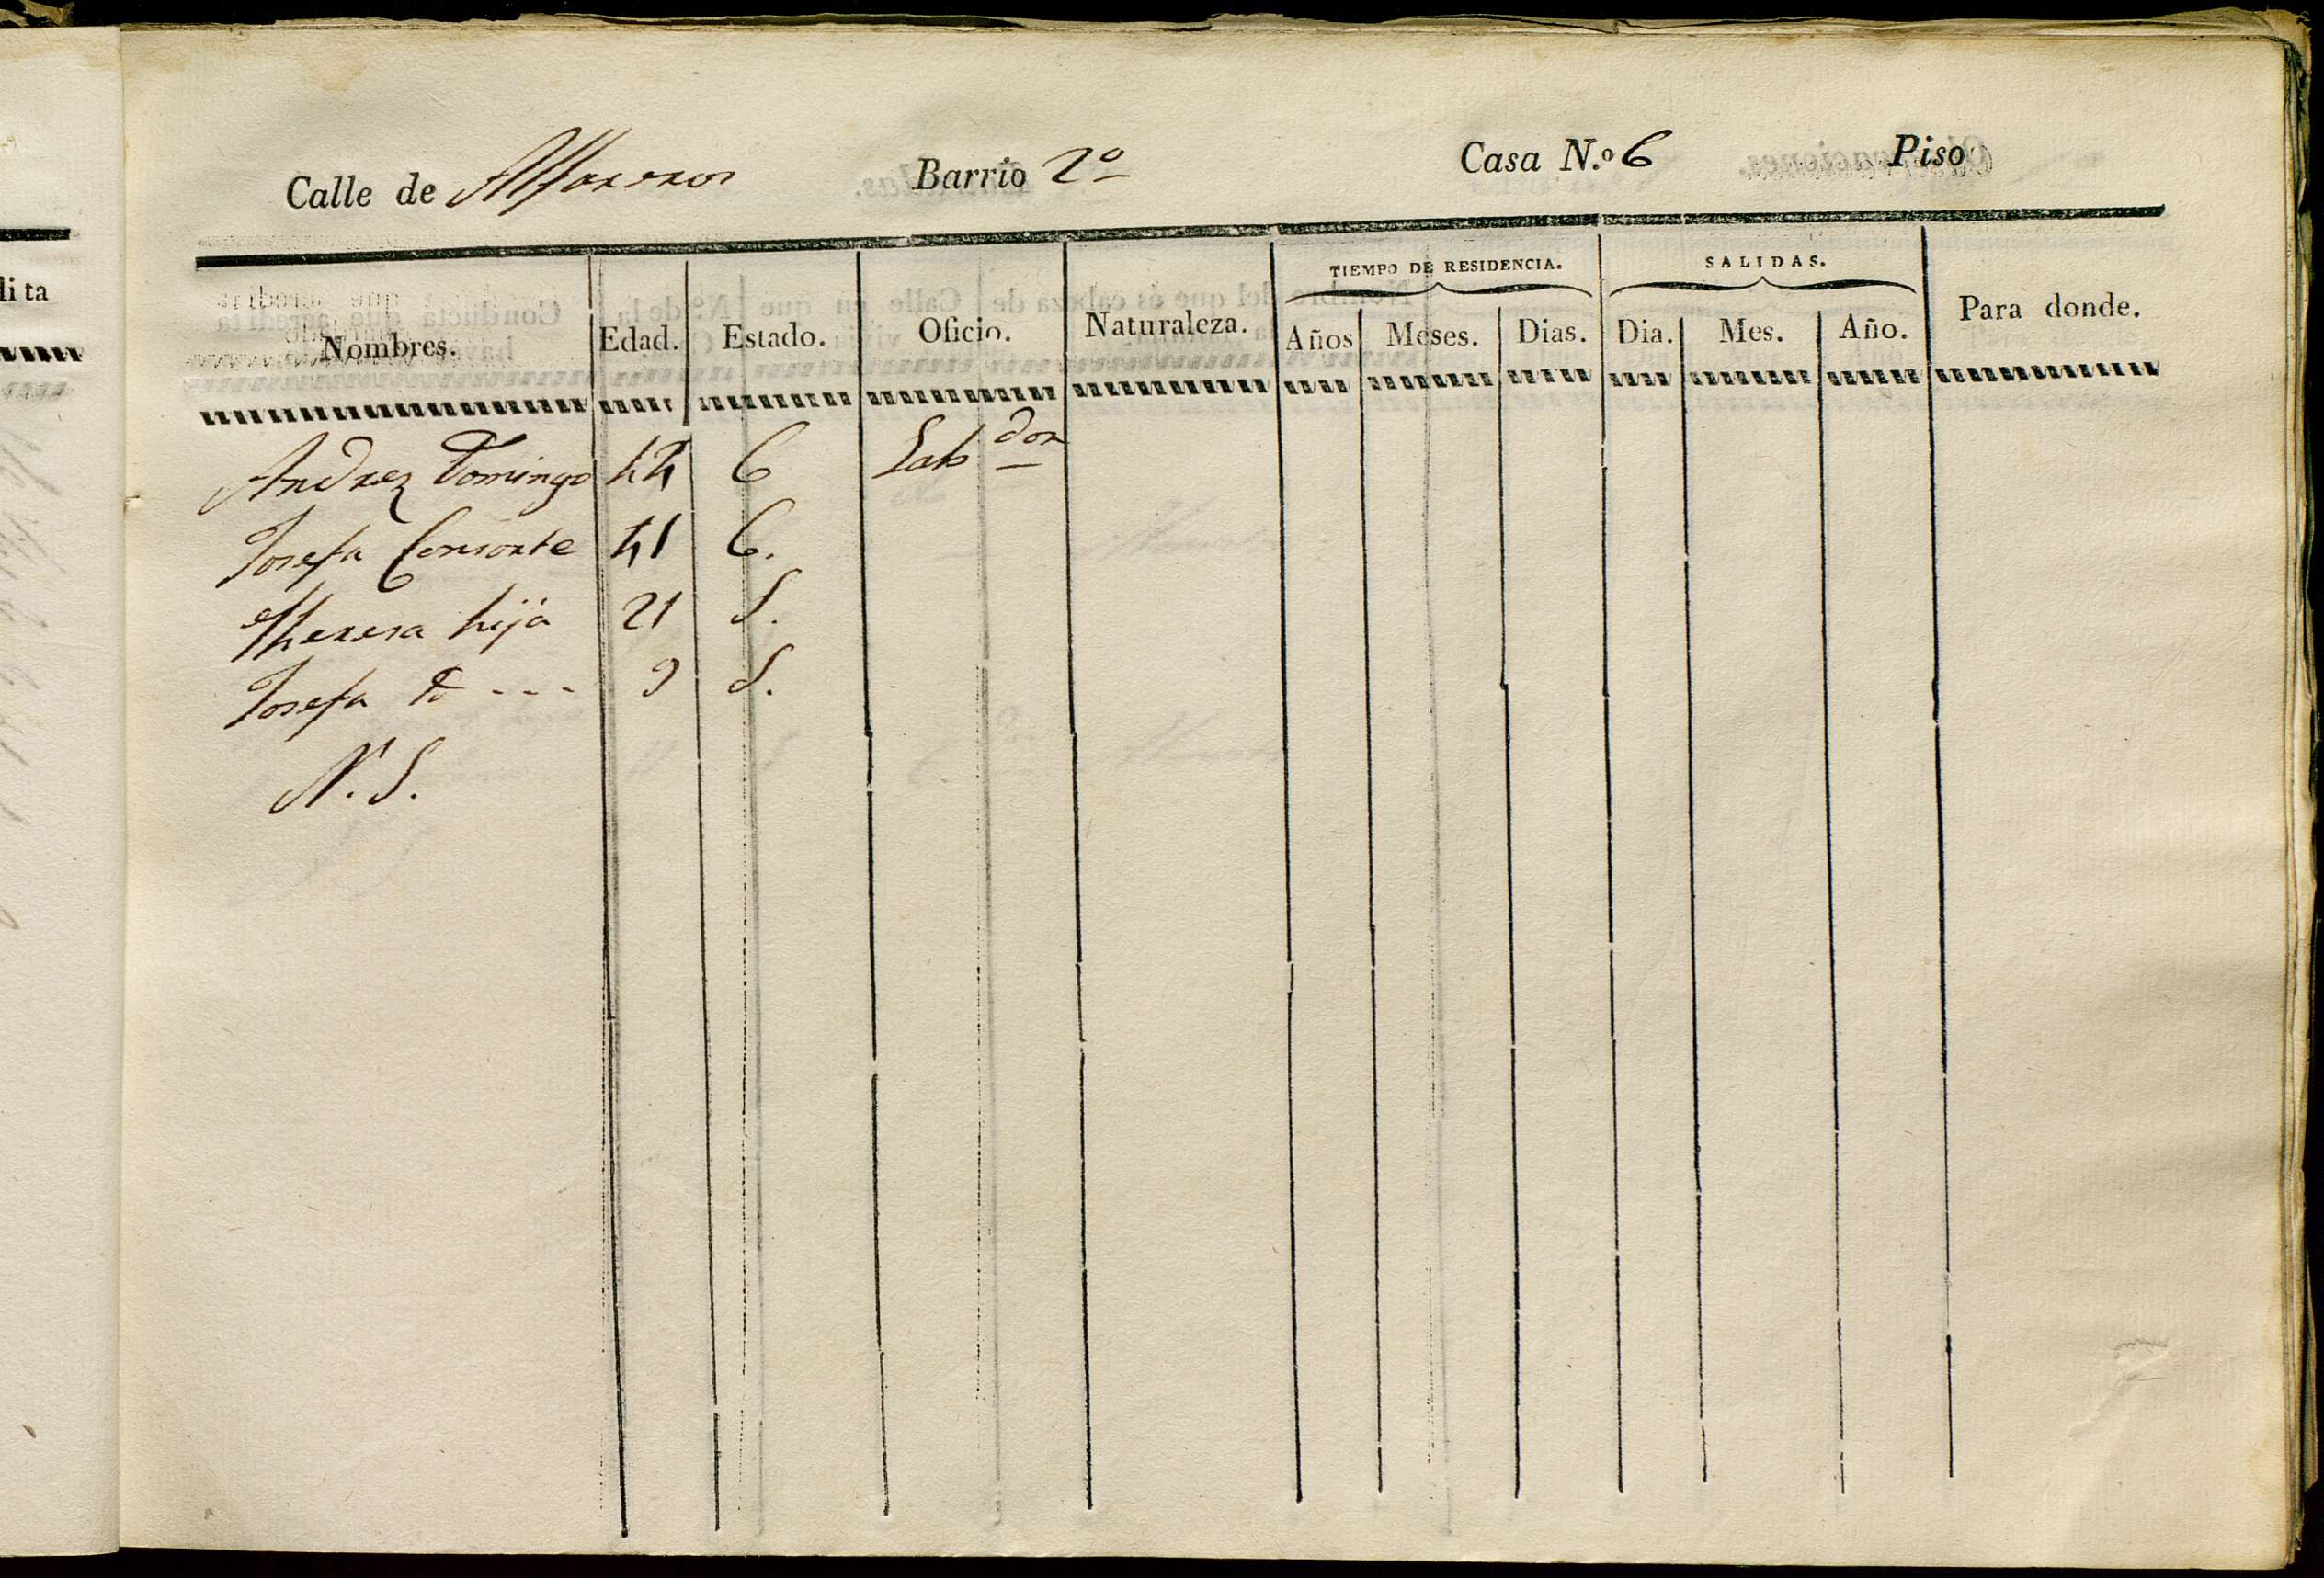 dita
Calle de Alfareros Barrio 2º Casa N.º 6 Piso
Nombres. Edad. Estado. Oficio. Naturaleza. TIEMPO DE RESIDENCIA. Años Meses. Dias. SALIDAS. Dia. Mes. Año. Para donde.
Andrez Domingo 44 C Labdor
Josefa Consorte 41 C.
Theresa hija 21 S.
Josefa Yd - - - 9 S.
N. S.